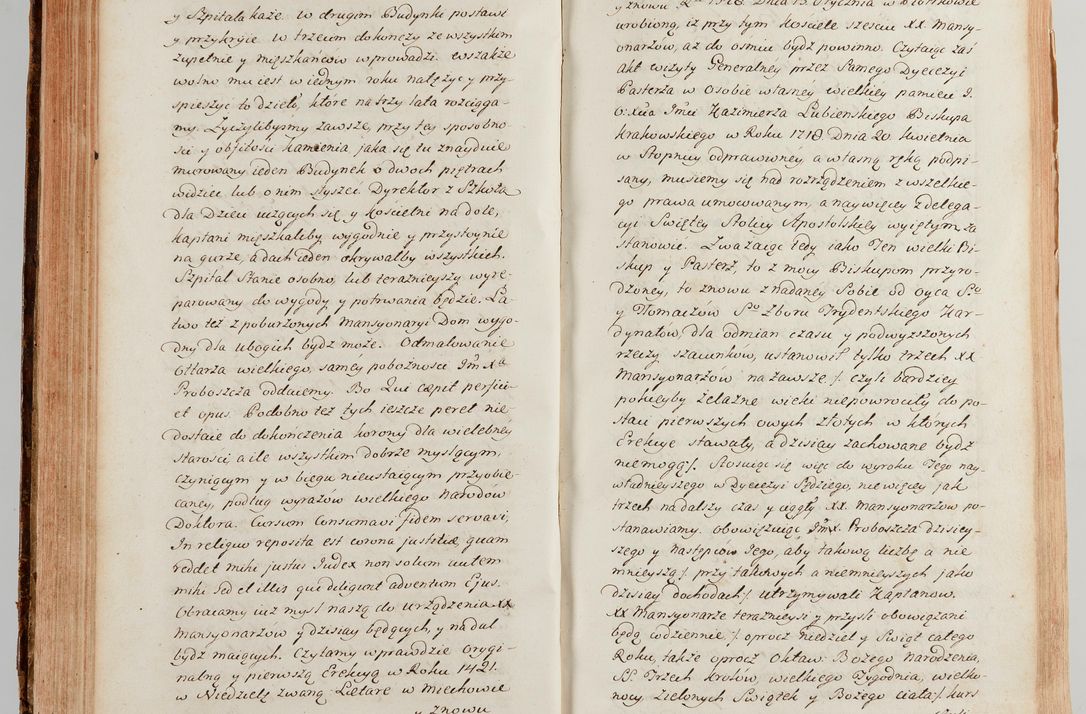 y Szpitala każe. w drugim Budynki postawi
y przykryie w trzecim dokończy ze wszystkim
zupełnie y mięszkańców wprowadzi. wszakże
wolno mu iest w iednym roku natężyć y przy-
spieszyć to dzieło, które na trzy lata rozciąga-
my. Życzylibyśmy zawsze, przy tey sposobno
ści y obfitości kamienia jaka się tu znayduie
murowany ieden Budynek o dwoch piętrach
widzieć lub o nim słyszeć Dyrektor z Szkołą
dla Dzieci uczących się y kościelni na dole,
kapłani mięszkaliby wygodnie y przystoynie
na gurze, a dach ieden okrywałby wszystkich.
Szpital stanie osobno, lub teraznieyszy wyre-
parowany do wygody y potrwania będzie. Ła-
two też z poburzonych Mansyonaryi Dom wygo-
dny dla ubogich bydz może. Odmalowanie
Ołtarza wielkiego, saméy pobożności Jm Xa
Proboszcza oddaiemy. Bo Qui cæpit perfici-
et opus. Podobno też tych ieszcze pereł nie-
dostaie do dokończenia korony dla wielebnéy
starości a ile wszystkim dobrze myślącym,
czyniącym y w biegu nieustaiącym przyobie-
caney, podług wyrazów wielkiego Narodów
Doktora. Cursum Consumavi fidem servavi,
In reliquo reposita est corona justitiæ, quam
reddet mihi justus Judex non solum autem
mihi sed et illis qui diligunt adventum Ejus.
Obracamy iuż myśl naszą do urządzenia XX
Mansyonarzów y dzisiay będących, y na dal
bydź maiących. Czytamy wprawdzie orygi-
nalną y pierwszą Erekcyą w Roku 1421.
w Niedzielę zwaną Lætare w Miechowie
y znowu
y znowu Dnia 13. Stycznia w Piotrkowie
urobioną, iż przy tym kościele sześciu XX. Mansy-
onarzów, aż do ośmiu bydź powinno. Czytaiąc zaś
Akt wizyty Generalnéy przez Samego Dyecezyi
Pasterza w Osobie własney wielkiéy pamięci J.
O. Xcia Jmci Kazimierza Łubieńskiego Biskupa
krakowskiego w Roku 1718 Dnia 20 kwietnia
w Stopnicy odprawionéy, a własną ręką podpi-
sany, musiemy się nad rozrządzeniem z wszelkie-
go prawa umocowanym, a naywięcey z delega-
cyi Świętey Stolicy Apostolskiéy wyiętym za
stanowić. Zważaiąc tedy iako Ten wielki Bi-
skup y Pasterz, to z mocy Biskupom przyro-
dzoney, to znowu z nadaney Sobie od Oyca S.o
y Tłomaczow S.o Zboru Trydentskiego Kar-
dynałów, dla odmian czasu y podwyższonych
rzeczy szacunków, ustanowił tylko trzech XX
Mansyonarzów na zawsze /. czyli bardziey
pokiéyby żelazne wieki niepowrociły do po-
staci pierwszych owych złotych w których
Erekcye stawały, a dzisiay zachowane bydz
niemogą/. Stosuiąc się więc do wyroku Jego nay-
władnieyszego w Dyecezyi Sędziego, niewięcey jak
trzech na dalszy czas y ciągły XX. Mansyonarzów po-
stanawiamy. obowięzuiąc Jmx. Proboszcza dzisiey-
szego y Następców Jego, aby takową liczbę a nie
mnieyszą /. przy takowych a niemnieyszych jako
dzisiay dochodach/. utrzymywali Kapłanow.
XX Mansyonarze teraznieysi y przyśli obowiązani
będą codziennie /. oprocz Niedziel y Świąt całego
Roku, także oprocz Oktaw: Bożego Narodzenia,
SS Trzech krolów, wielkiego Tygodnia, wielko-
nocy Zielonych Świątek y Bożego ciała /. kurs